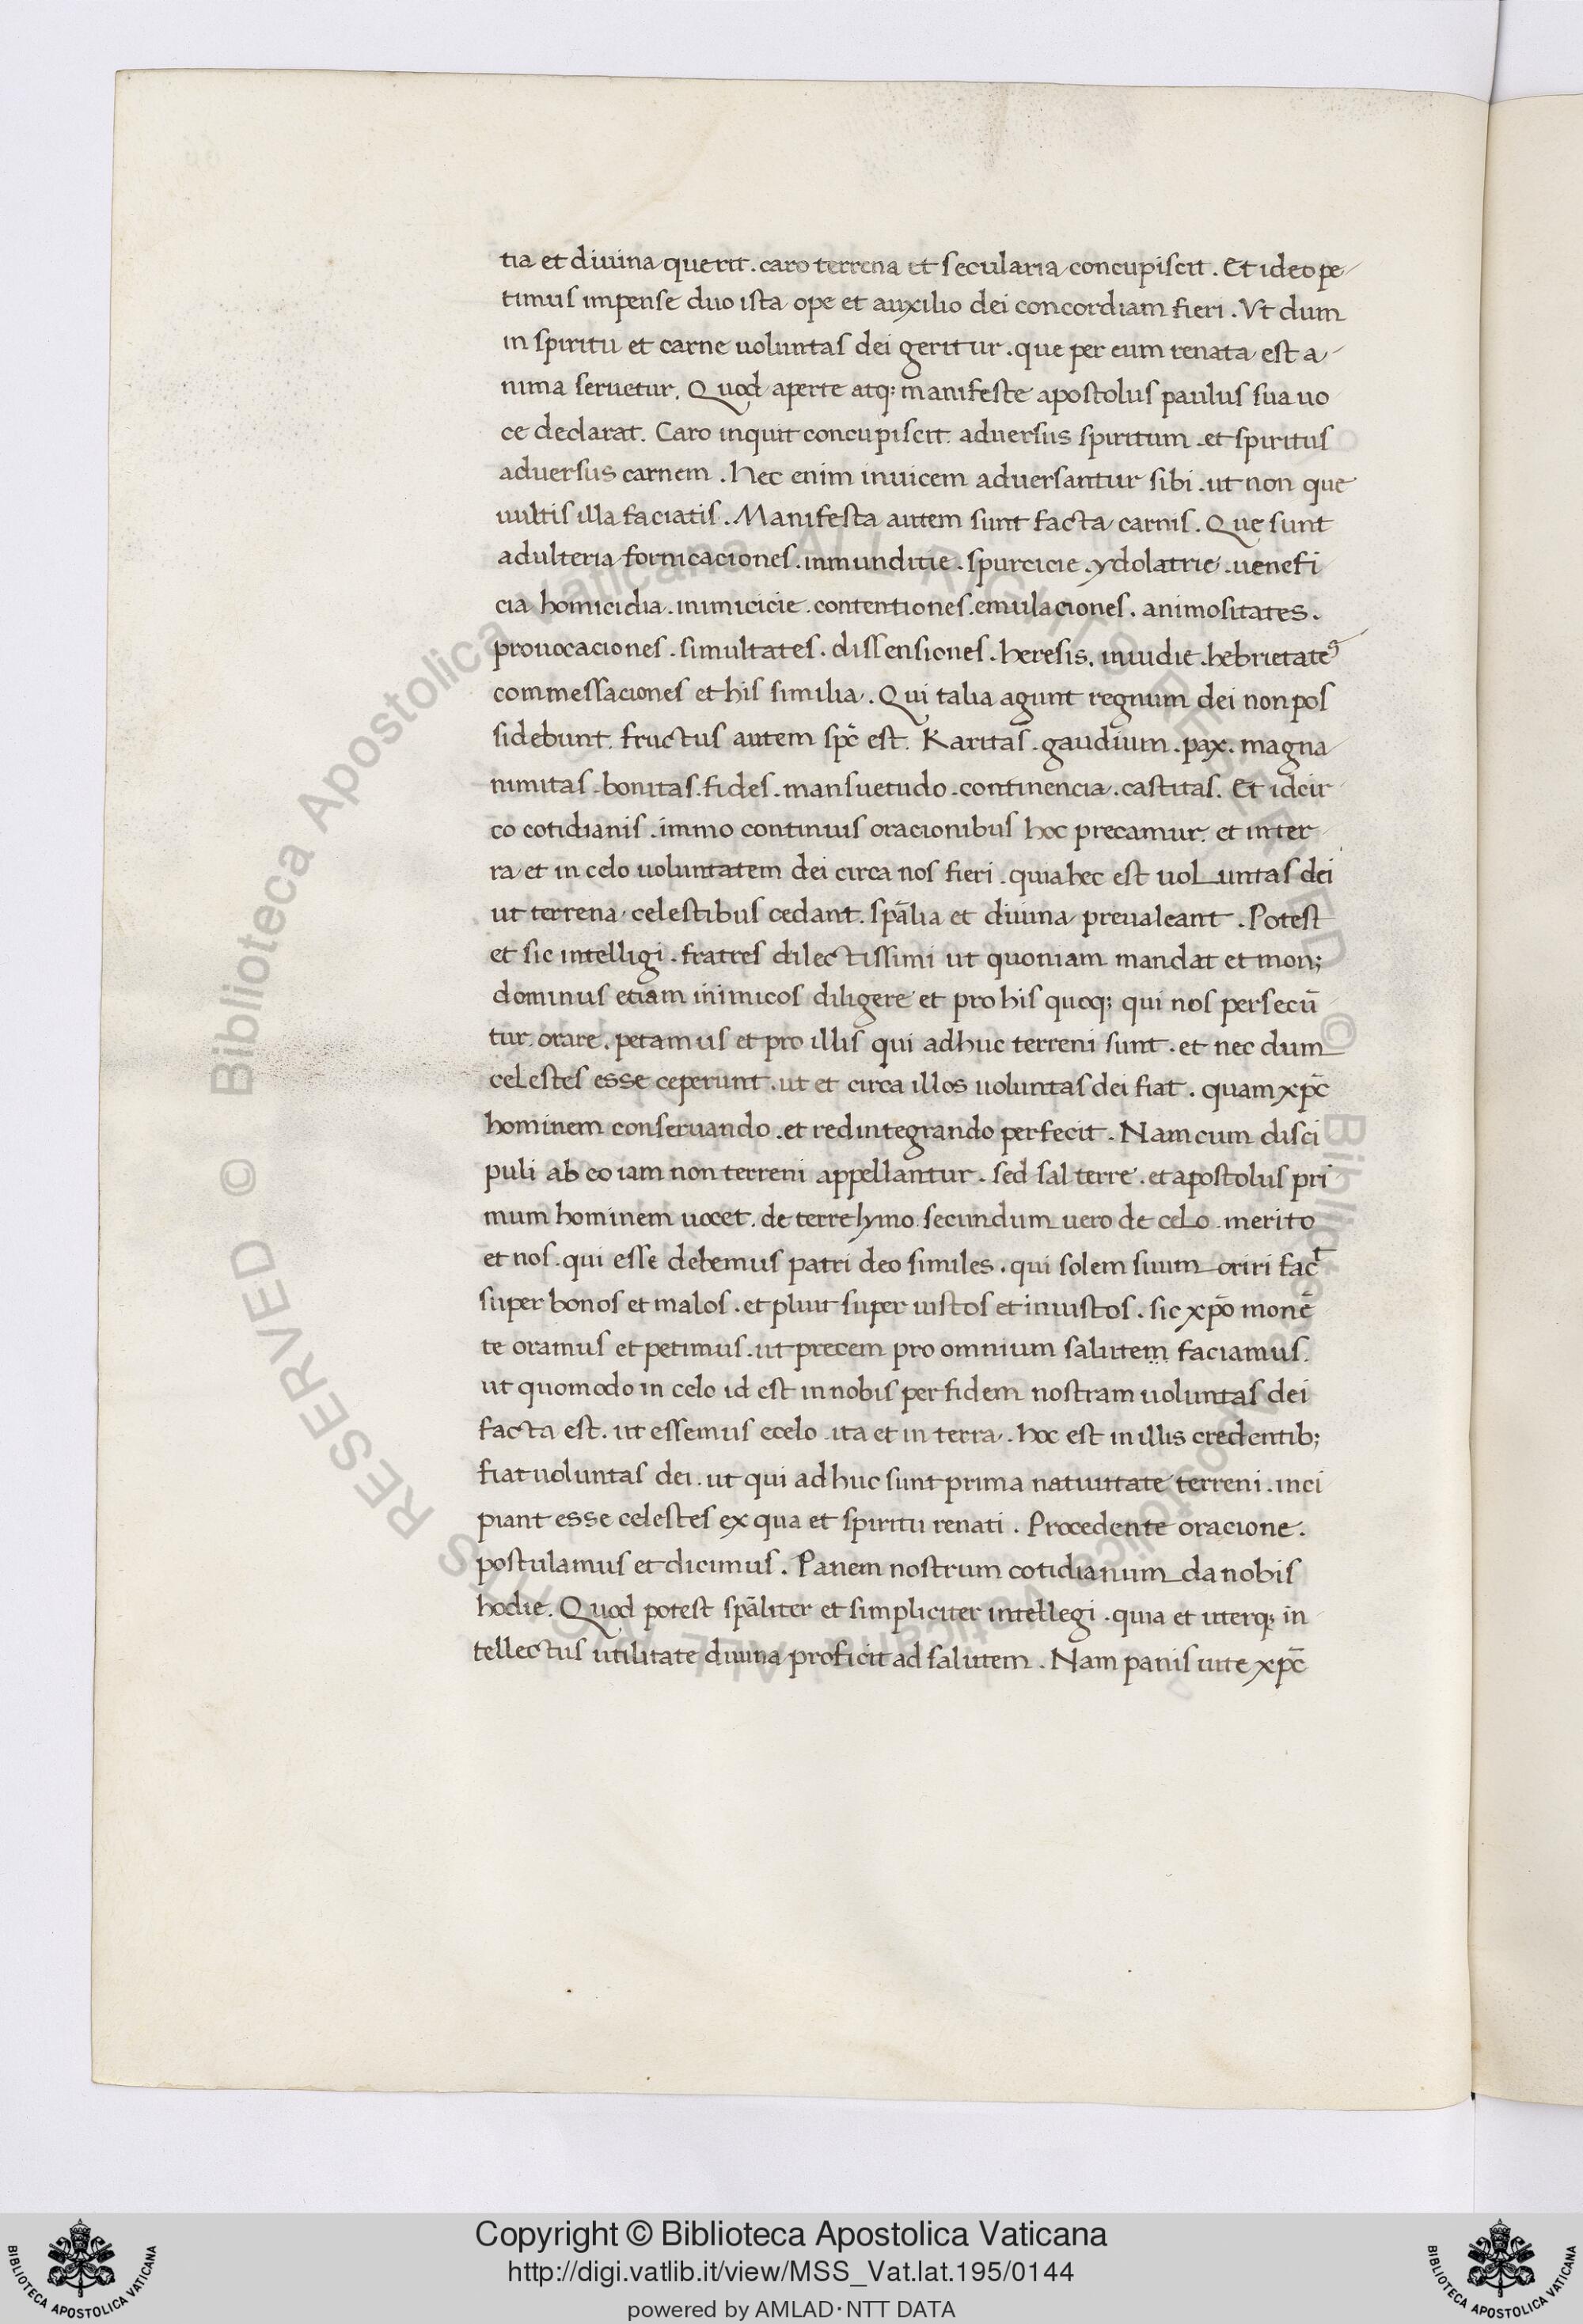 tia et diuina querit. caro terrena et secularia concupiscit. Et ideo pe-
timus impense duo ista ope et auxilio dei concordiam fieri. Vt dum
in spiritu et carne uoluntas dei geritur. que per eum renata est a-
nima seruetur. Quod aperte atq; manifeste apostolus paulus sua uo
ce declarat. Caro inquit concupiscit aduersus spiritum et spiritus
aduersus carnem. Hec enim inuicem aduersantur sibi. ut non que
uultis illa faciatis. Manifesta autem sunt facta carnis. Que sunt
adulteria fornicaciones. inmunditie. spurcicie. ydolatrie. uenefi
cia homicidia. inimicicie. contentiones. emulaciones. animositates.
prouocaciones. simultates. dissensiones. heresis. inuidie. hebrietates
commessaciones et his similia. Qui talia agunt regnum dei non pos
sidebunt. fructus autem spc̄ est. Karitas. gaudium. pax. magna
nimitas. bonitas. fides. mansuetudo. continencia. castitas. Et idcir
co cotidianis. immo continuis oracionibus hoc precamur. et in ter
ra et in celo uoluntatem dei circa nos fieri. quia hec est uoluntas dei
ut terrena celestibus cedant. spālia et diuina preualeant. Potest
et sic intelligi. fratres dilectissimi ut quoniam mandat et mon;
dominus etiam inimicos diligere et pro his quoq; qui nos persecū
tur. orare. petamus et pro illis qui adhuc terreni sunt. et nec dum
celestes esse ceperunt. ut et circa illos uoluntas dei fiat. quam xpc̄
hominem conseruando. et redintegrando perfecit. Nam cum disci
puli ab eo iam non terreni appellantur. sed sal terre. et apostolus pri
mum hominem uocet. de terre lymo. secundum uero de celo. merito
et nos. qui esse debemus patri deo similes. qui solem suum oriri fac̄
super bonos et malos. et pluit super iustos et iniustos. sic xpō monē
te oramus et petimus. ut precem pro omnium salutem faciamus.
ut quomodo in celo id est in nobis per fidem nostram uoluntas dei
facta est. ut essemus e celo. ita et in terra. hoc est in illis credentib;
fiat uoluntas dei. ut qui ad huc sunt prima natiuitate terreni. inci
piant esse celestes ex qua et spiritu renati. Procedente oracione.
postulamus et dicimus. Panem nostrum cotidianum da nobis
hodie. Quod potest spāliter et simpliciter intellegi. quia et uterq; in
tellectus utilitate diuina proficit ad salutem. Nam panis uite xpc̄
© Biblioteca Apostolica Vaticana ALL RIGHTS RESERVED
© Biblioteca Apostolica Vaticana ALL RIGHTS RESERVED
Copyright © Biblioteca Apostolica Vaticana
http://digi.vatlib.it/view/MSS_Vat.lat.195/0144
powered by AMLAD·NTT DATA
BIBLIOTECA APOSTOLICA VATICANA
BIBLIOTECA APOSTOLICA VATICANA